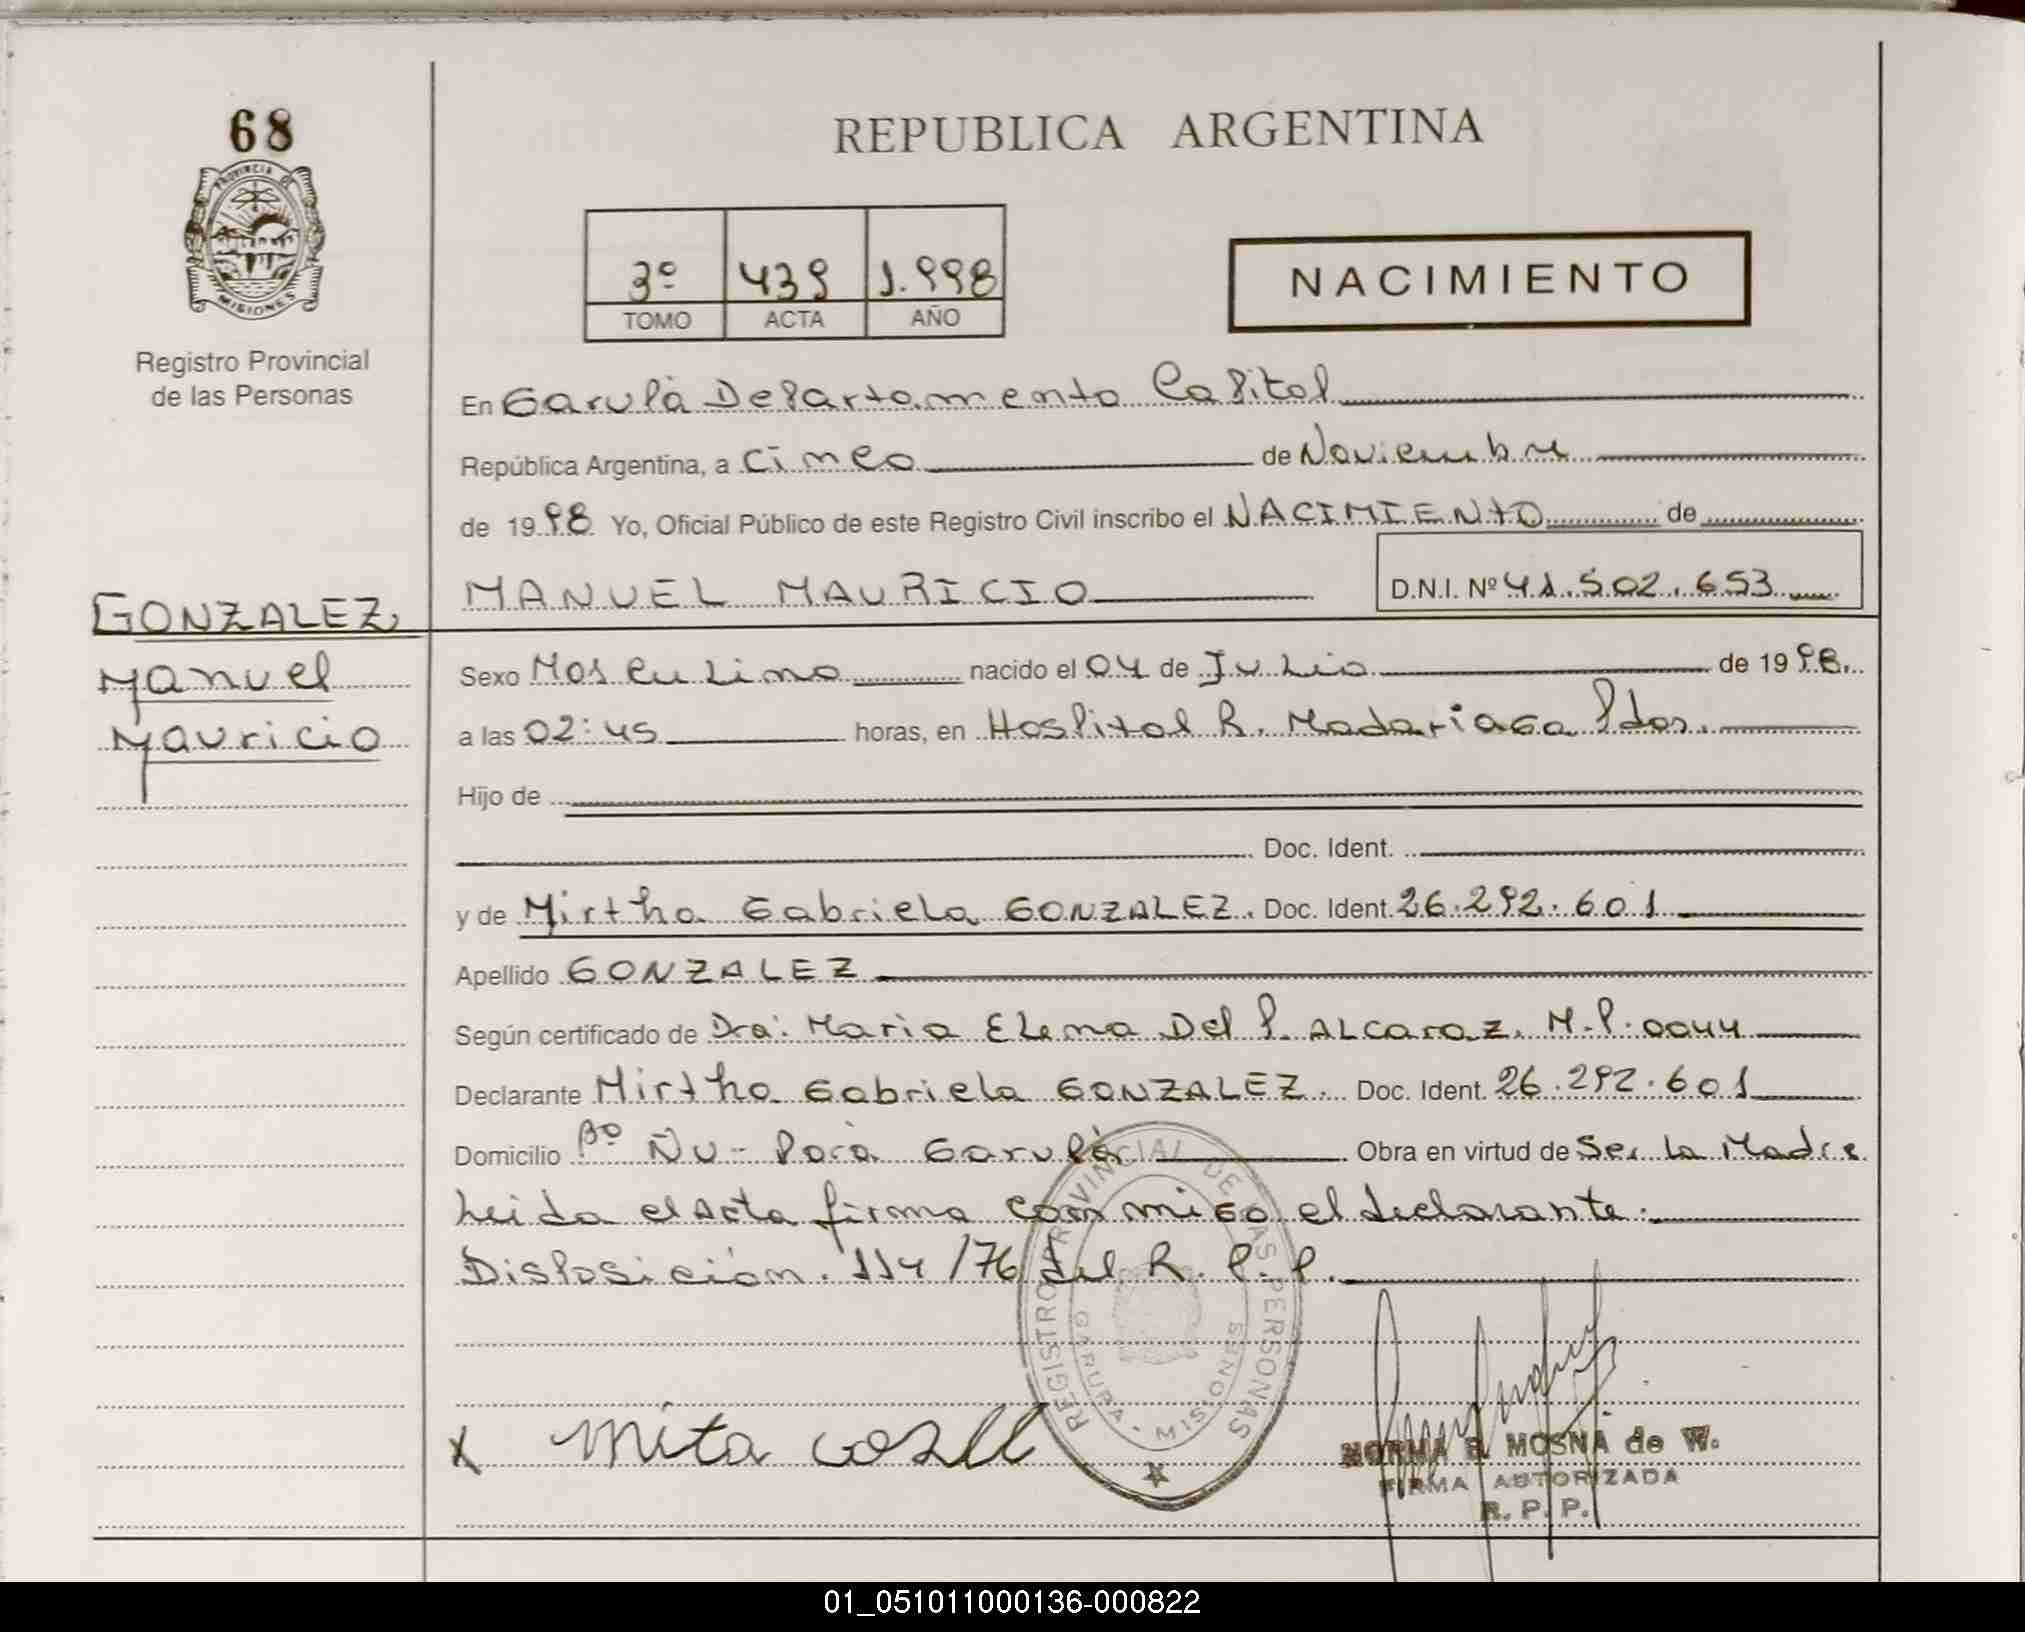 68
PROVINCIA DE
MISIONES
Registro Provincial
de las Personas
GONZALEZ
Manuel
Mauricio
REPUBLICA ARGENTINA
3º 439 1.998
TOMO ACTA AÑO
NACIMIENTO
En Garupá Departamento Capital
República Argentina, a cinco de Noviembre
de 1998 Yo, Oficial Público de este Registro Civil inscribo el NACIMIENTO de
MANUEL MAURICIO D.N.I. Nº 41.502.653
Sexo Masculino nacido el 04 de Julio de 1998
a las 02:45 horas, en Hospital R. Madariaga Pdas.
Hijo de
Doc. Ident.
y de Mirtha Gabriela GONZALEZ. Doc. Ident. 26.292.601
Apellido GONZALEZ
Según certificado de Dra: Maria Elena Del P. ALcaraz. M.P. 0044
Declarante Mirtha Gabriela GONZALEZ. Doc. Ident. 26.292.601
Domicilio Bº Ñu-Porá Garupá Obra en virtud de Ser la Madre
Leida el Acta firma conmigo el declarante.
Disposición 114/76 del R.P.P.
REGISTRO PROVINCIAL DE LAS PERSONAS
GARUPA - MISIONES
x Mita
NORMA B. MOSNA de W.
FIRMA AUTORIZADA
R. P. P.
01_051011000136-000822